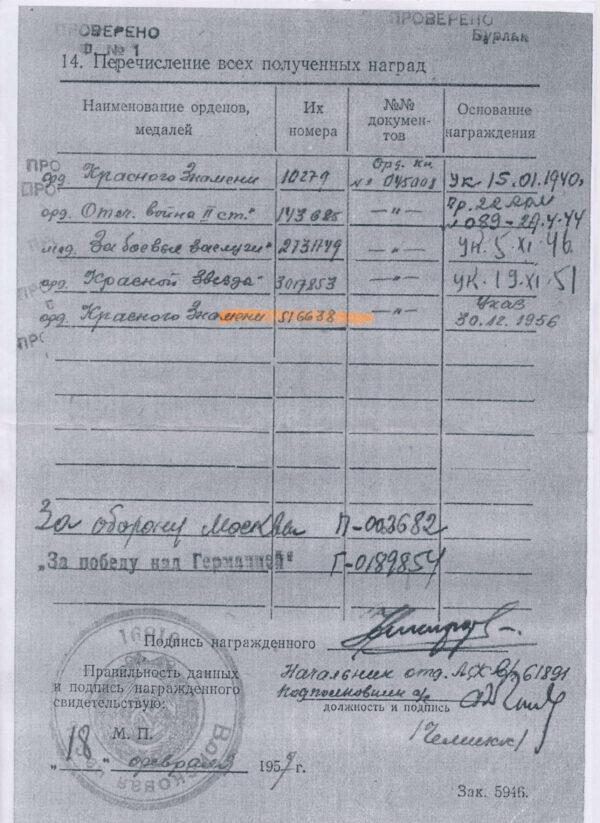 ПРОВЕРЕНО
Ф. № 1
ПРОВЕРЕНО
Бурлак
14. Перечисление всех полученных наград
Наименование орденов, медалей
Их номера
№№ документов
Основание награждения
орд. Красного Знамени 10279 Орд. Кн. № 045008 Ук. 15.01.1940г
орд. Отеч. война II ст." 143685 —"— Пр. № 089-29.4.44
мед. За боевые заслуги" 2731749 —"— Ук. 5.XI.46
орд. Красной Звезда" 3017853 —"— Ук. 19.XI.51
орд. Красного Знамени 516638 —"— Указ 30.12.1956
За оборону Москвы П-003682
„За победу над Германией" Г-0189854
Подпись награжденного
Правильность данных
и подпись награжденного
свидетельствую:
Начальник отд. в/ч 61891
подполковник
должность и подпись
М. П.
„18" февраля 1957 г.
Зак. 5946.